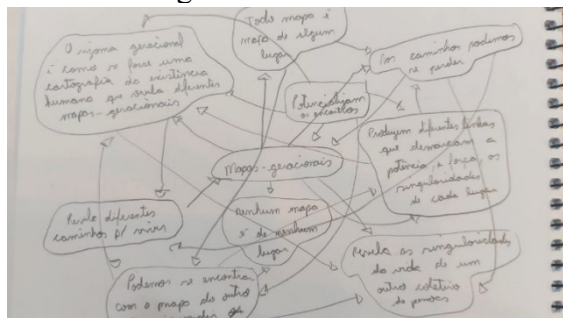 Todo mapa é
mapa de algum
lugar
O rizoma geracional
é como se fosse uma
cartografia da existência
humana que revela diferentes
mapas-geracionais
Nos caminhos podemos
se perder
Potencializam
os encontros
Produzem diferentes linhas
que demarcam a
potência, a força, as
singularidades
de cada lugar
Mapas-geracionais
Revela diferentes
caminhos p/ viver
nenhum mapa
é de nenhum
lugar
Revela as singularidades
da vida de um
outro coletivo
de pessoas
Podemos se encontrar
com o mapa do outro